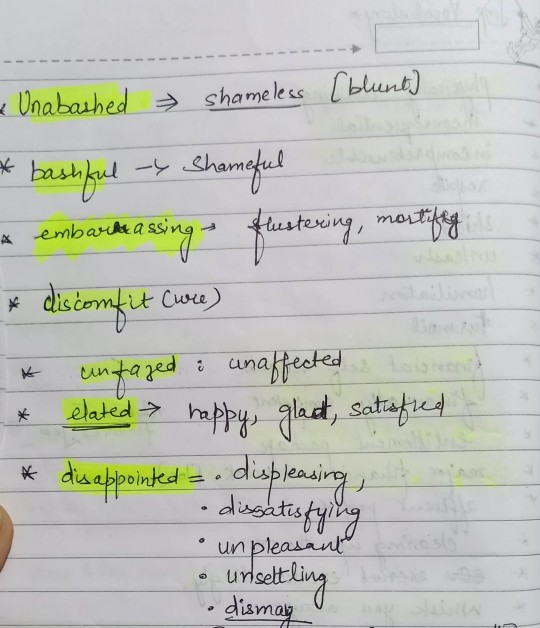 * Unabashed ⇒ shameless [blunt]
* bashful → Shameful
* embarrassing → flustering, mortify
* discomfit (ure)
* unfazed : unaffected
* elated → happy, glad, satisfied
* disappointed = • displeasing,
• dissatisfying
• unpleasant
• unsettling
• dismay